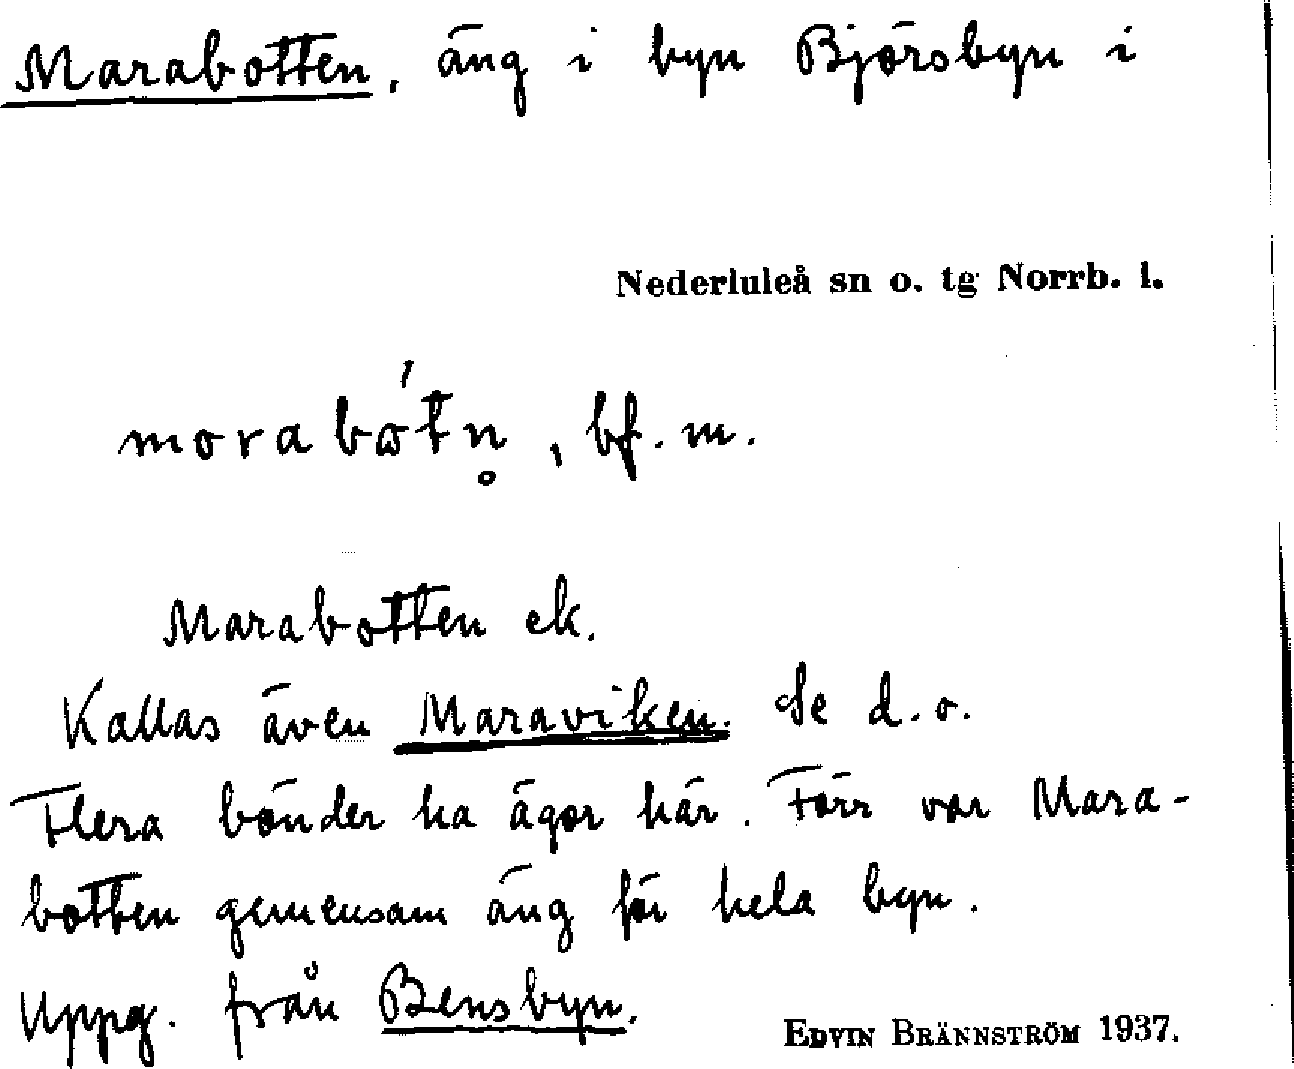 Marabotten, äng i byn Björsbyn i
Nederluleå sn o. tg Norrb. l.
morabotn̥, bf. m.
Marabotten ek.
Kallas även Maraviken. Se d. o.
Flera bönder ha ägor här. Förr var Mara-
botten gemensam äng för hela byn.
Uppg. från Bensbyn.
EDVIN BRÄNNSTRÖM 1937.